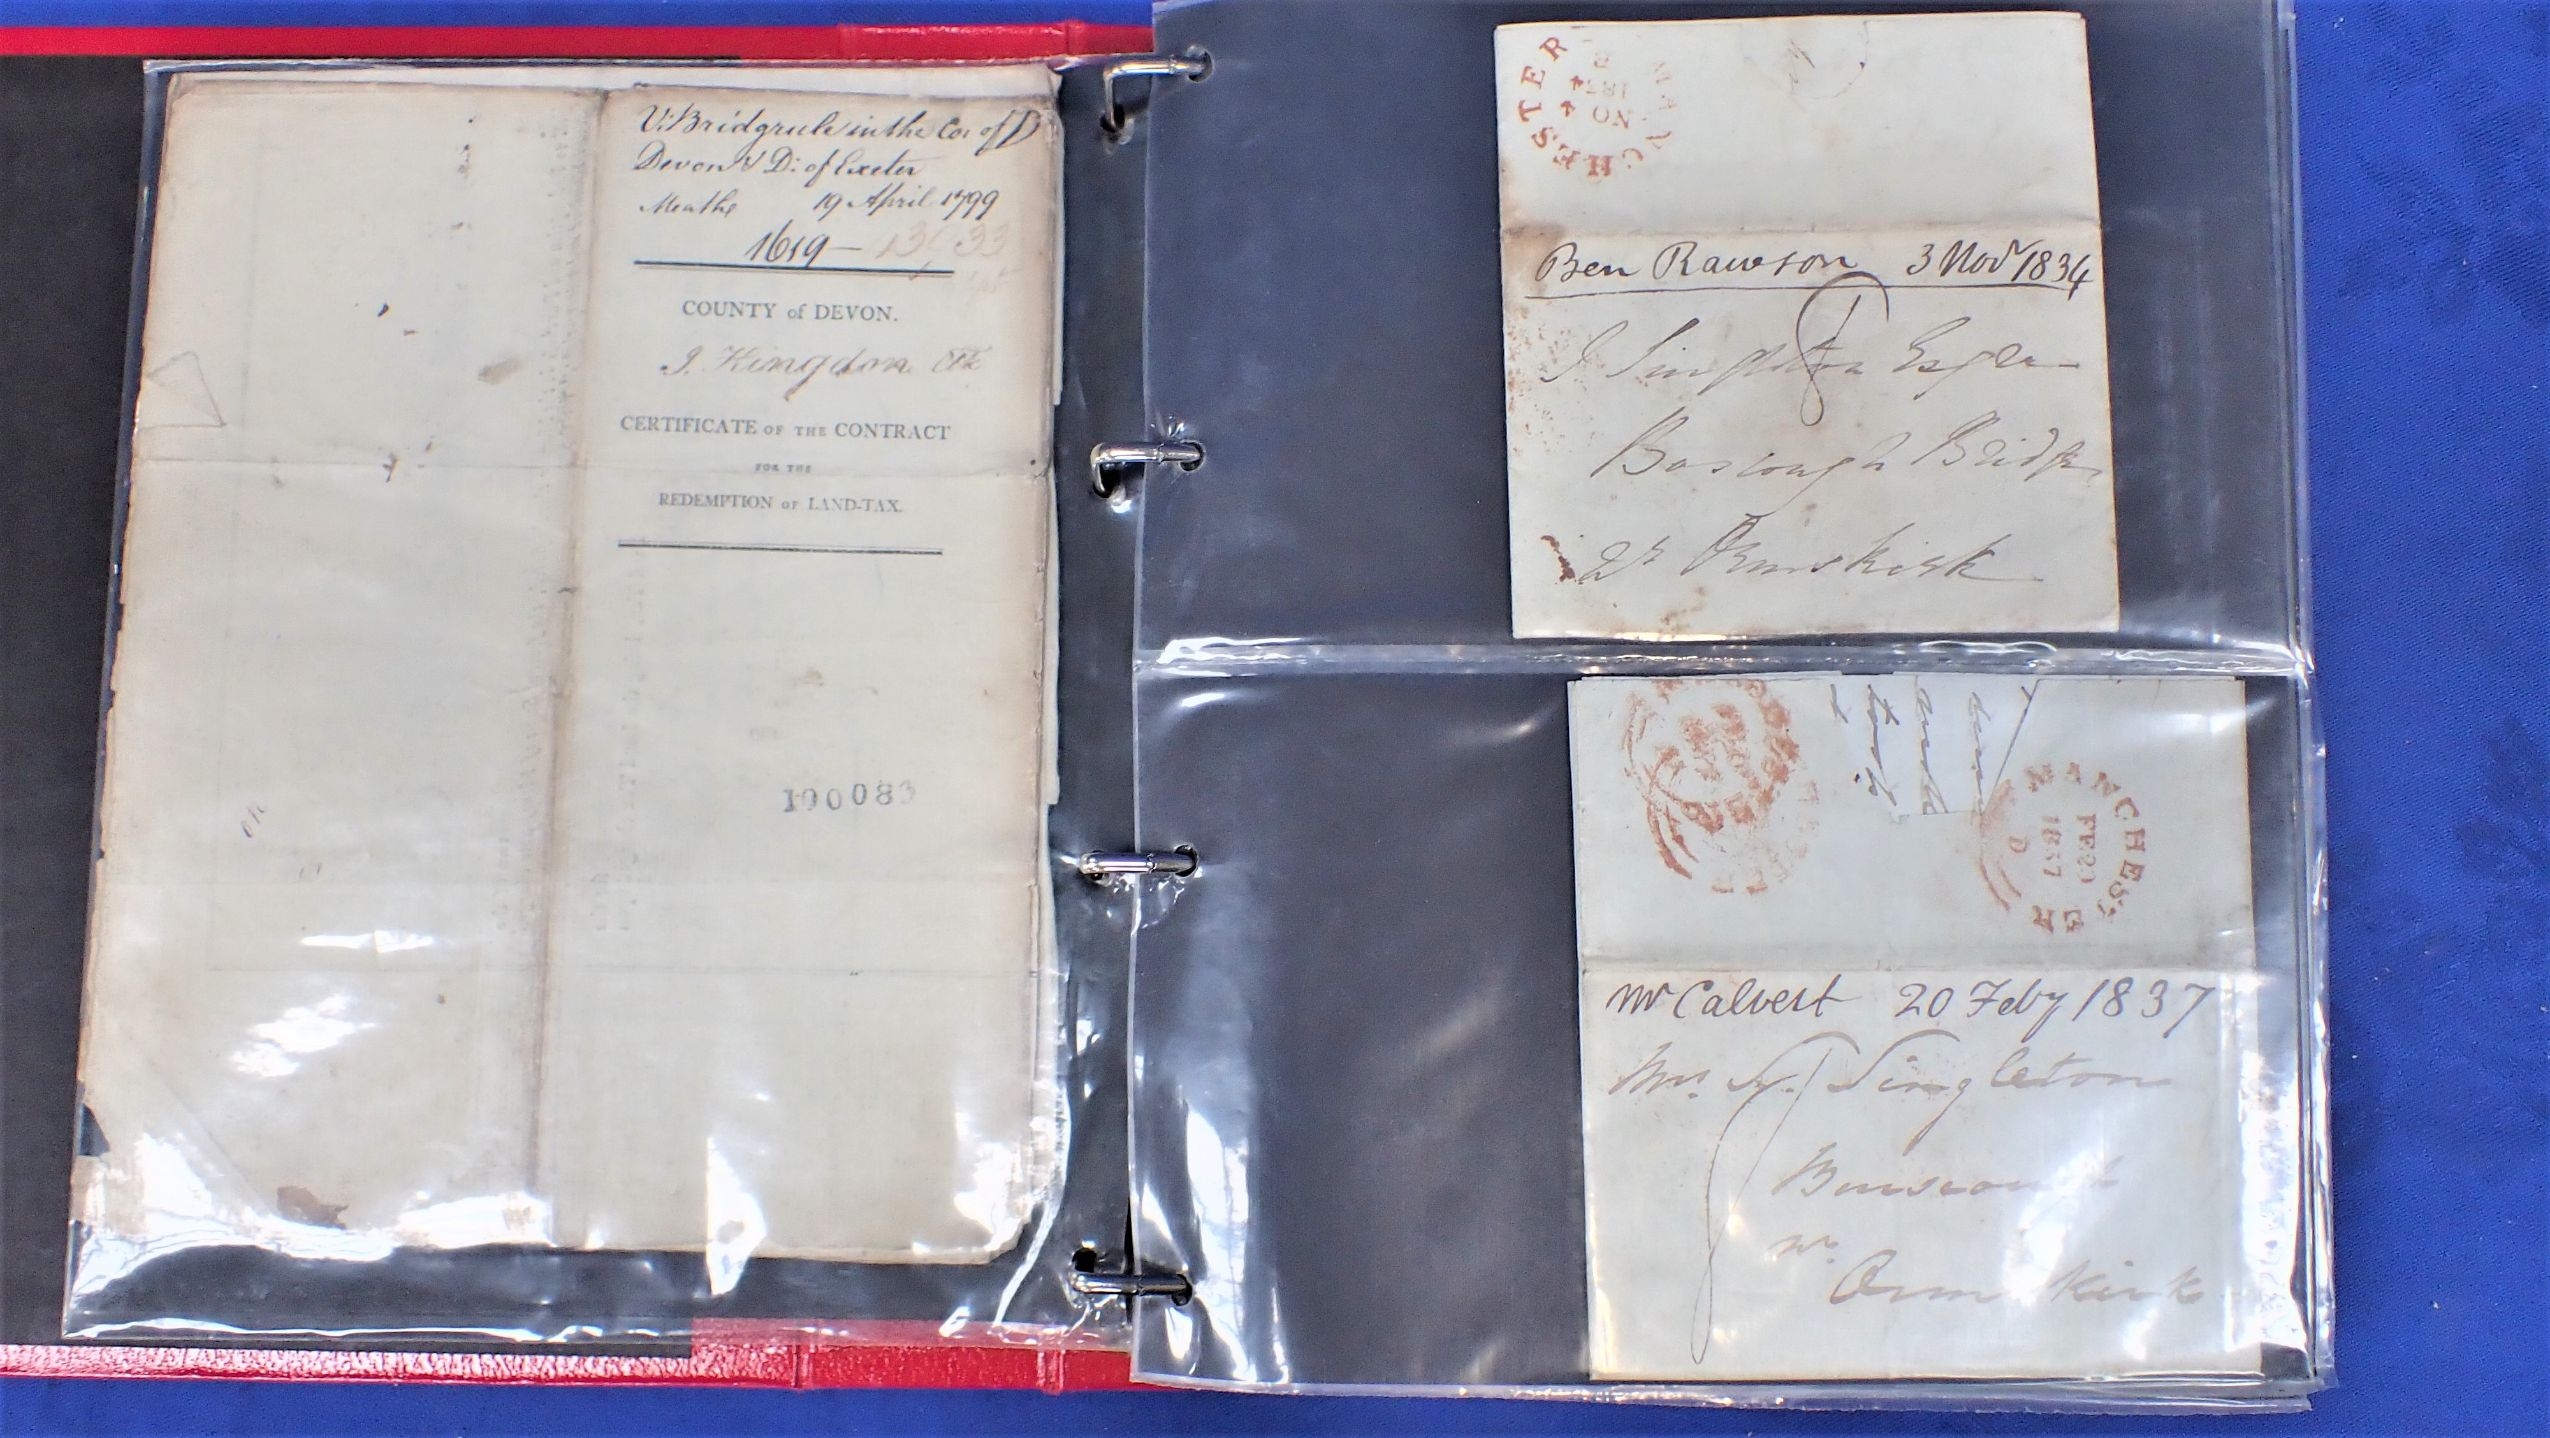 V: Bridgrule in the Co: of D
Devon & D: of Exeter
19 April 1799
1619 —
COUNTY of DEVON.
J. Kingdon
CERTIFICATE OF THE CONTRACT
FOR THE
REDEMPTION OF LAND-TAX.
100083
MANCHESTER
NO 4
1834
Ben Rawson 3 Nov 1834
J Singleton Esq
Boscough Bridge
Nr Ormskirk
MANCHESTER
FE 20
1837
D
Mr Calvert 20 Feby 1837
Singleton
Burscough
Nr
Ormskirk